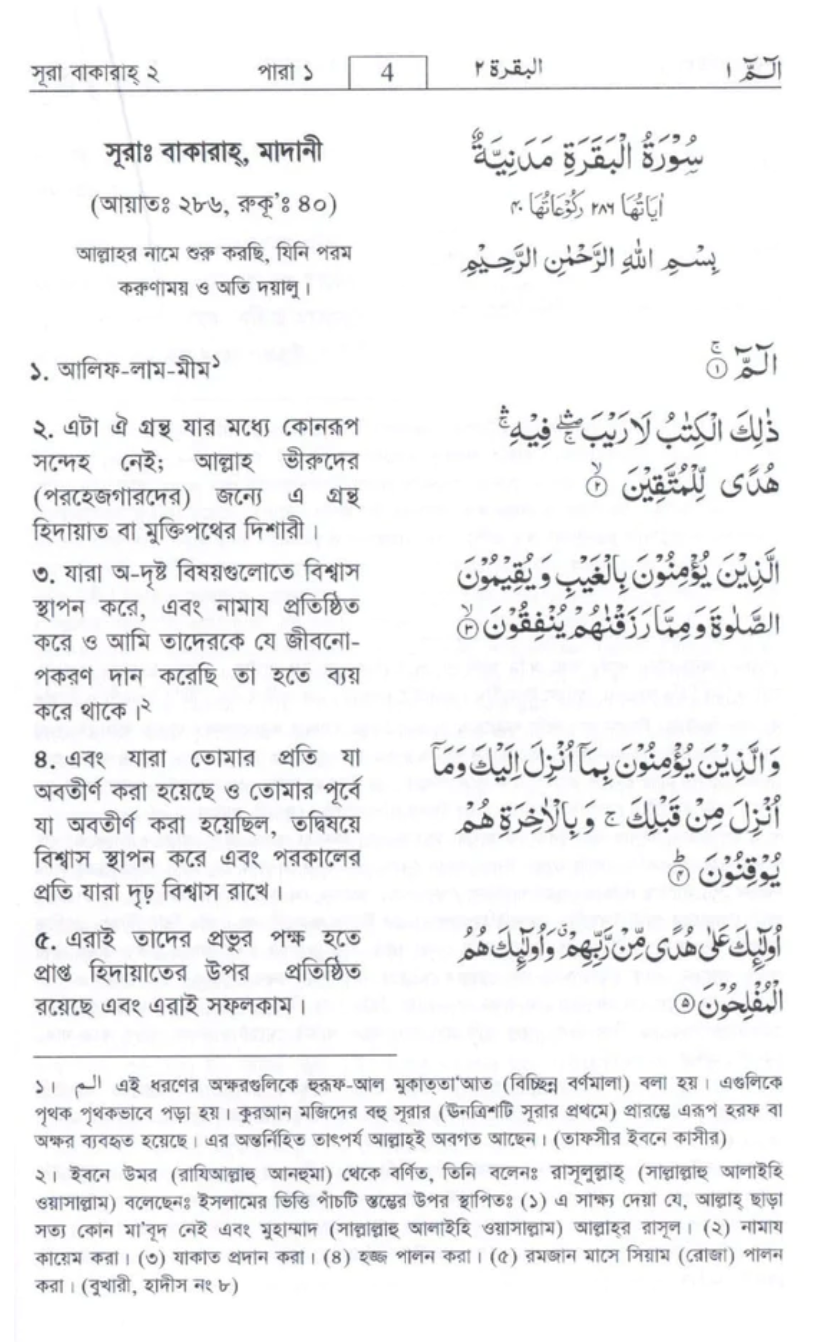 সূরা বাকারাহ্ ২ পারা ১ 4 البقرة ٢ الٓمّٓ ١
সূরাঃ বাকারাহ্, মাদানী
(আয়াতঃ ২৮৬, রুকূ'ঃ ৪০)
আল্লাহর নামে শুরু করছি, যিনি পরম
করুণাময় ও অতি দয়ালু।
১. আলিফ-লাম-মীম১
২. এটা ঐ গ্রন্থ যার মধ্যে কোনরূপ
সন্দেহ নেই; আল্লাহ ভীরুদের
(পরহেজগারদের) জন্যে এ গ্রন্থ
হিদায়াত বা মুক্তিপথের দিশারী।
৩. যারা অ-দৃষ্ট বিষয়গুলোতে বিশ্বাস
স্থাপন করে, এবং নামায প্রতিষ্ঠিত
করে ও আমি তাদেরকে যে জীবনো-
পকরণ দান করেছি তা হতে ব্যয়
করে থাকে।২
৪. এবং যারা তোমার প্রতি যা
অবতীর্ণ করা হয়েছে ও তোমার পূর্বে
যা অবতীর্ণ করা হয়েছিল, তদ্বিষয়ে
বিশ্বাস স্থাপন করে এবং পরকালের
প্রতি যারা দৃঢ় বিশ্বাস রাখে।
৫. এরাই তাদের প্রভুর পক্ষ হতে
প্রাপ্ত হিদায়াতের উপর প্রতিষ্ঠিত
রয়েছে এবং এরাই সফলকাম।
سُوْرَةُ الْبَقَرَةِ مَدَنِيَّةٌ
اٰيَاتُهَا ٢٨٦ رُكُوْعَاتُهَا ٤٠
بِسْمِ اللهِ الرَّحْمٰنِ الرَّحِيْمِ
الٓمّٓ ۚ ﴿١﴾
ذٰلِكَ الْكِتٰبُ لَا رَيْبَ ۛۖۚ فِيْهِ ۛۚ
هُدًى لِّلْمُتَّقِيْنَ ۙ ﴿٢﴾
الَّذِيْنَ يُؤْمِنُوْنَ بِالْغَيْبِ وَيُقِيْمُوْنَ
الصَّلٰوةَ وَمِمَّا رَزَقْنٰهُمْ يُنْفِقُوْنَ ۙ ﴿٣﴾
وَالَّذِيْنَ يُؤْمِنُوْنَ بِمَآ اُنْزِلَ اِلَيْكَ وَمَآ
اُنْزِلَ مِنْ قَبْلِكَ ۚ وَبِالْاٰخِرَةِ هُمْ
يُوْقِنُوْنَ ؕ ﴿٤﴾
اُولٰٓئِكَ عَلٰى هُدًى مِّنْ رَّبِّهِمْ ۗ وَاُولٰٓئِكَ هُمُ
الْمُفْلِحُوْنَ ﴿٥﴾
১। الم এই ধরণের অক্ষরগুলিকে হুরূফ-আল মুকাত্তা'আত (বিচ্ছিন্ন বর্ণমালা) বলা হয়। এগুলিকে
পৃথক পৃথকভাবে পড়া হয়। কুরআন মজিদের বহু সূরার (ঊনত্রিশটি সূরার প্রথমে) প্রারম্ভে এরূপ হরফ বা
অক্ষর ব্যবহৃত হয়েছে। এর অন্তর্নিহিত তাৎপর্য আল্লাহই অবগত আছেন। (তাফসীর ইবনে কাসীর)
২। ইবনে উমর (রাযিআল্লাহু আনহুমা) থেকে বর্ণিত, তিনি বলেনঃ রাসূলুল্লাহ্ (সাল্লাল্লাহু আলাইহি
ওয়াসাল্লাম) বলেছেনঃ ইসলামের ভিত্তি পাঁচটি স্তম্ভের উপর স্থাপিতঃ (১) এ সাক্ষ্য দেয়া যে, আল্লাহ্ ছাড়া
সত্য কোন মা'বূদ নেই এবং মুহাম্মাদ (সাল্লাল্লাহু আলাইহি ওয়াসাল্লাম) আল্লাহ্‌র রাসূল। (২) নামায
কায়েম করা। (৩) যাকাত প্রদান করা। (৪) হজ্জ পালন করা। (৫) রমজান মাসে সিয়াম (রোজা) পালন
করা। (বুখারী, হাদীস নং ৮)